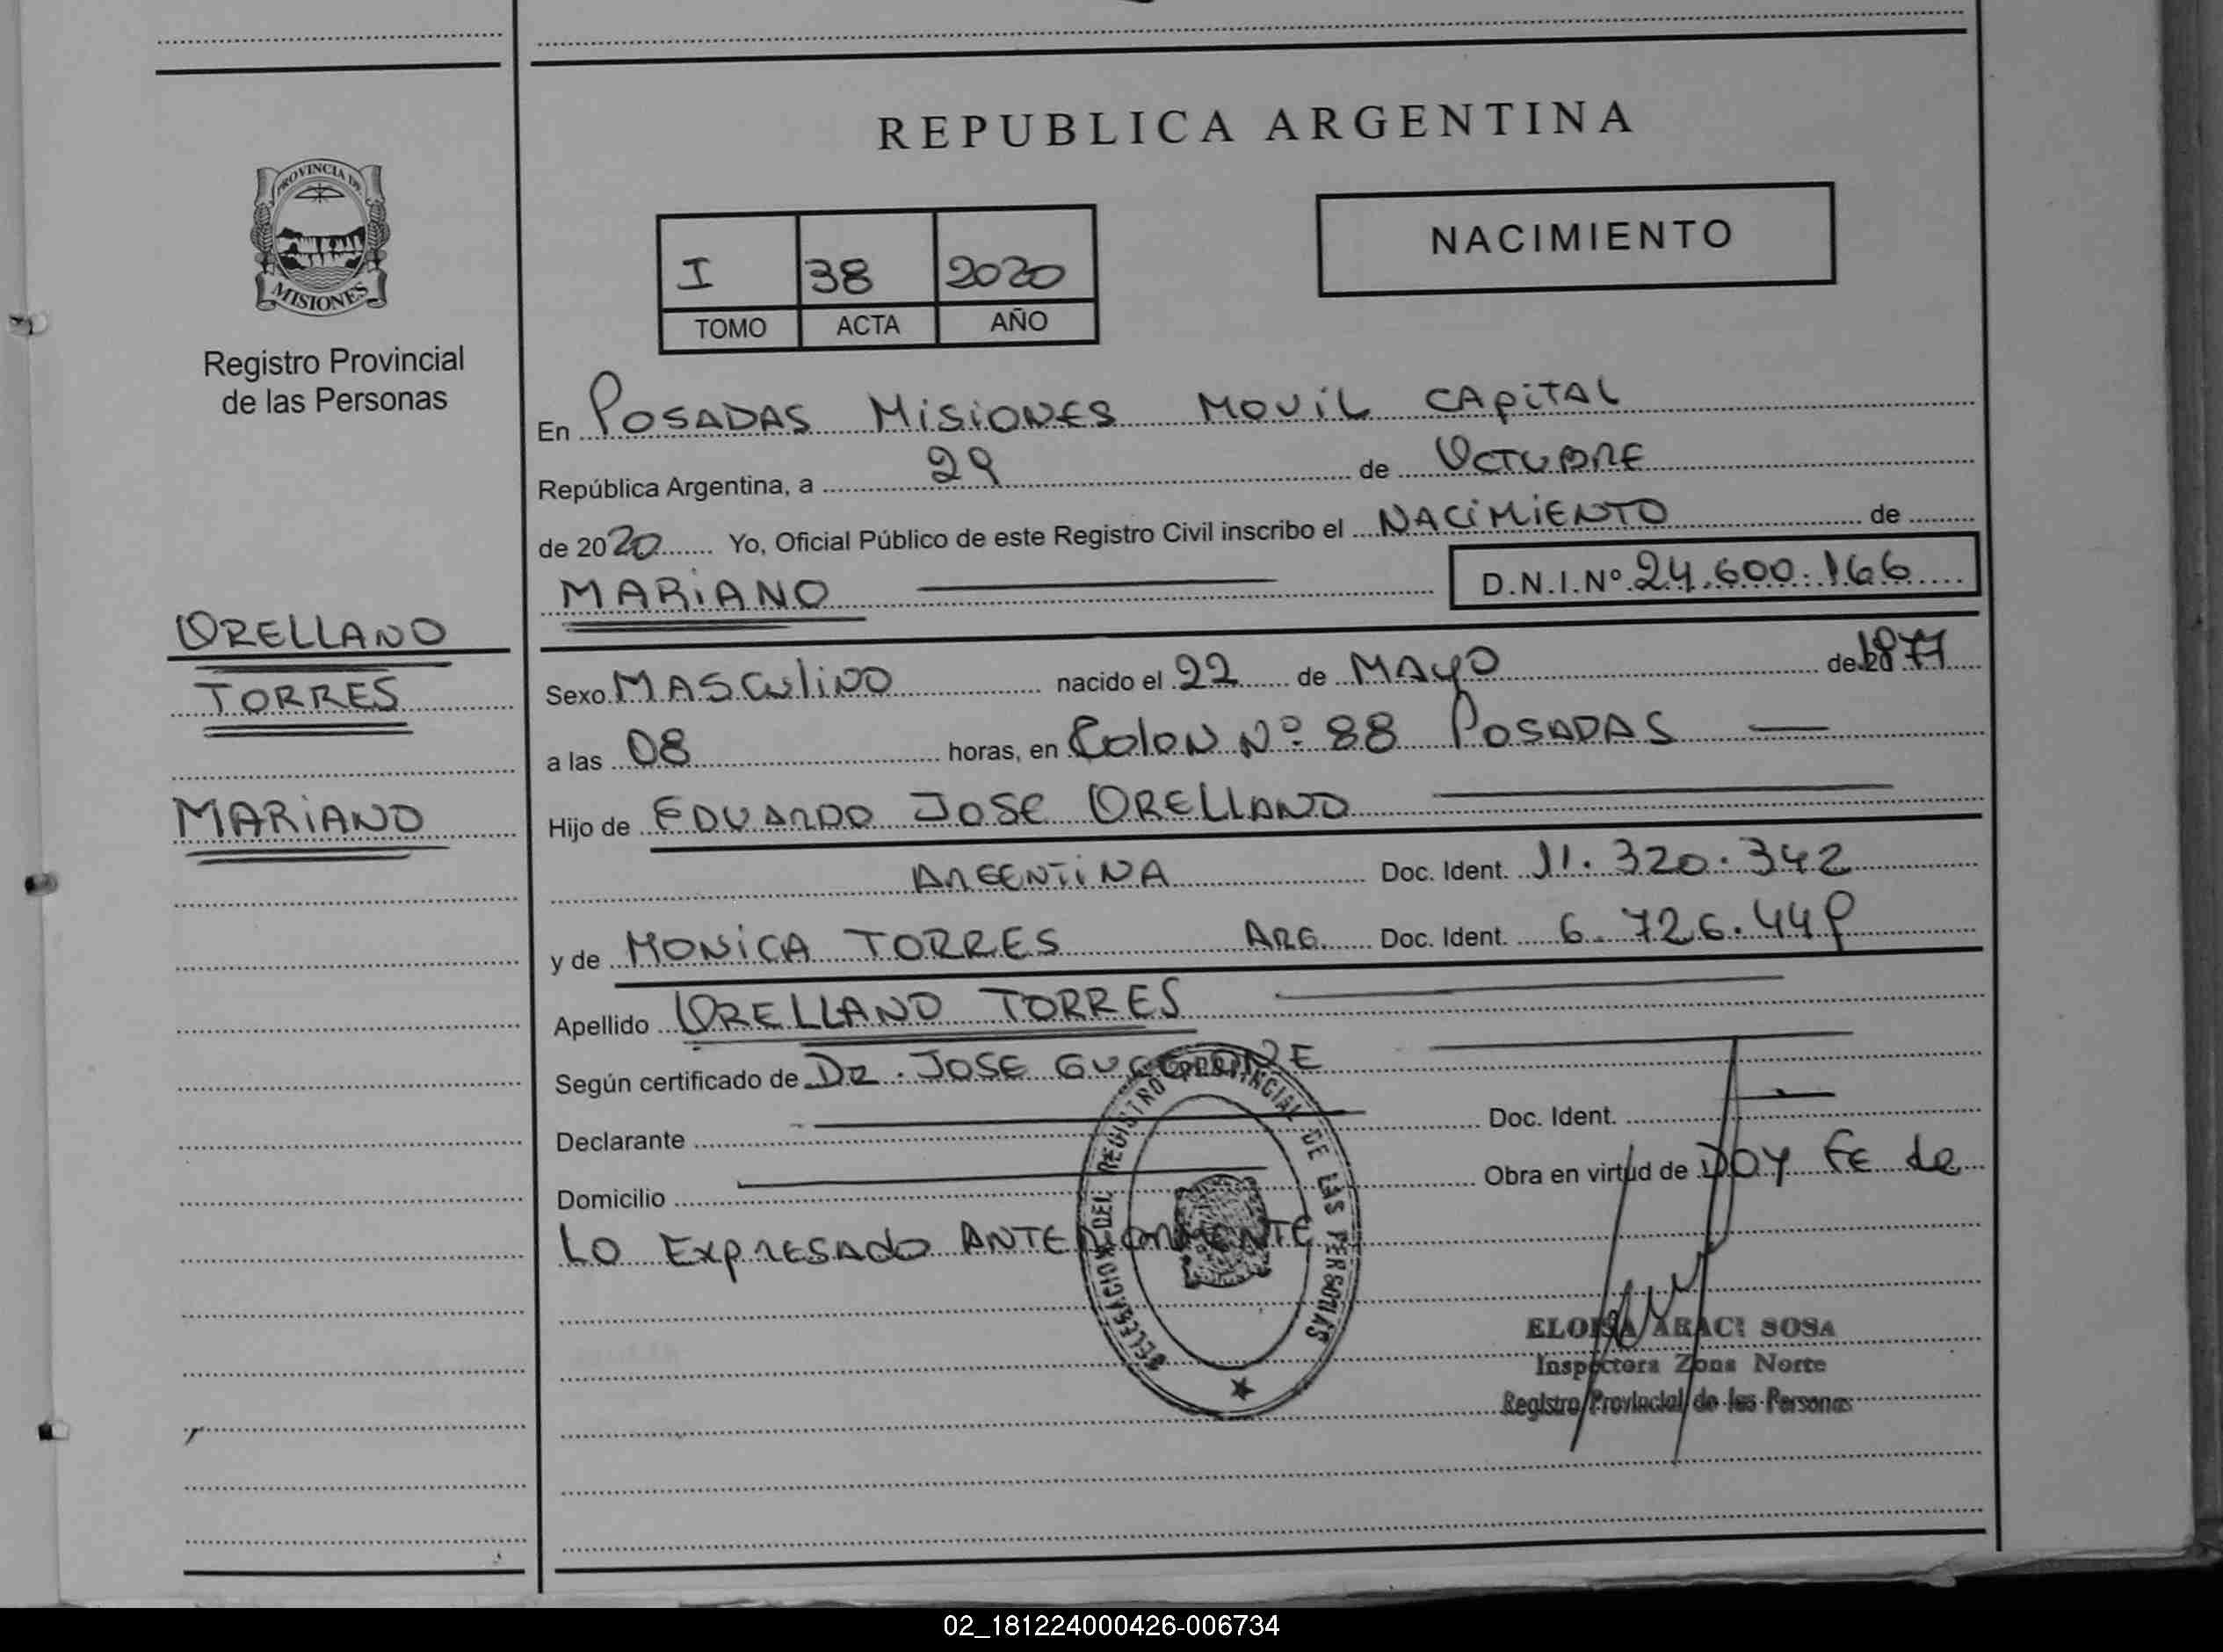 REPUBLICA ARGENTINA
PROVINCIA DE
MISIONES
Registro Provincial
de las Personas
I 38 2020
TOMO ACTA AÑO
NACIMIENTO
En POSADAS MISIONES MOVIL CAPITAL
República Argentina, a 29 de OCTUBRE
de 2020 Yo, Oficial Público de este Registro Civil inscribo el NACIMIENTO de
MARIANO D.N.I.Nº 24.600.166
ORELLANO
TORRES
MARIANO
Sexo MASCULINO nacido el 22 de MAYO de 1977
a las 08 horas, en Colon Nº 88 POSADAS
Hijo de EDUARDO JOSE ORELLANO
ARGENTINA Doc. Ident. 11.320.342
y de MONICA TORRES ARG. Doc. Ident. 6.726.449
Apellido ORELLANO TORRES
Según certificado de Dr. JOSE
Declarante Doc. Ident.
Domicilio Obra en virtud de DOY FE de
LO EXPRESADO ANTERIORMENTE
DELEGACION DEL REGISTRO PROVINCIAL DE LAS PERSONAS
ELOISA ARACI SOSA
Inspectora Zona Norte
Registro Provincial de las Personas
02_181224000426-006734